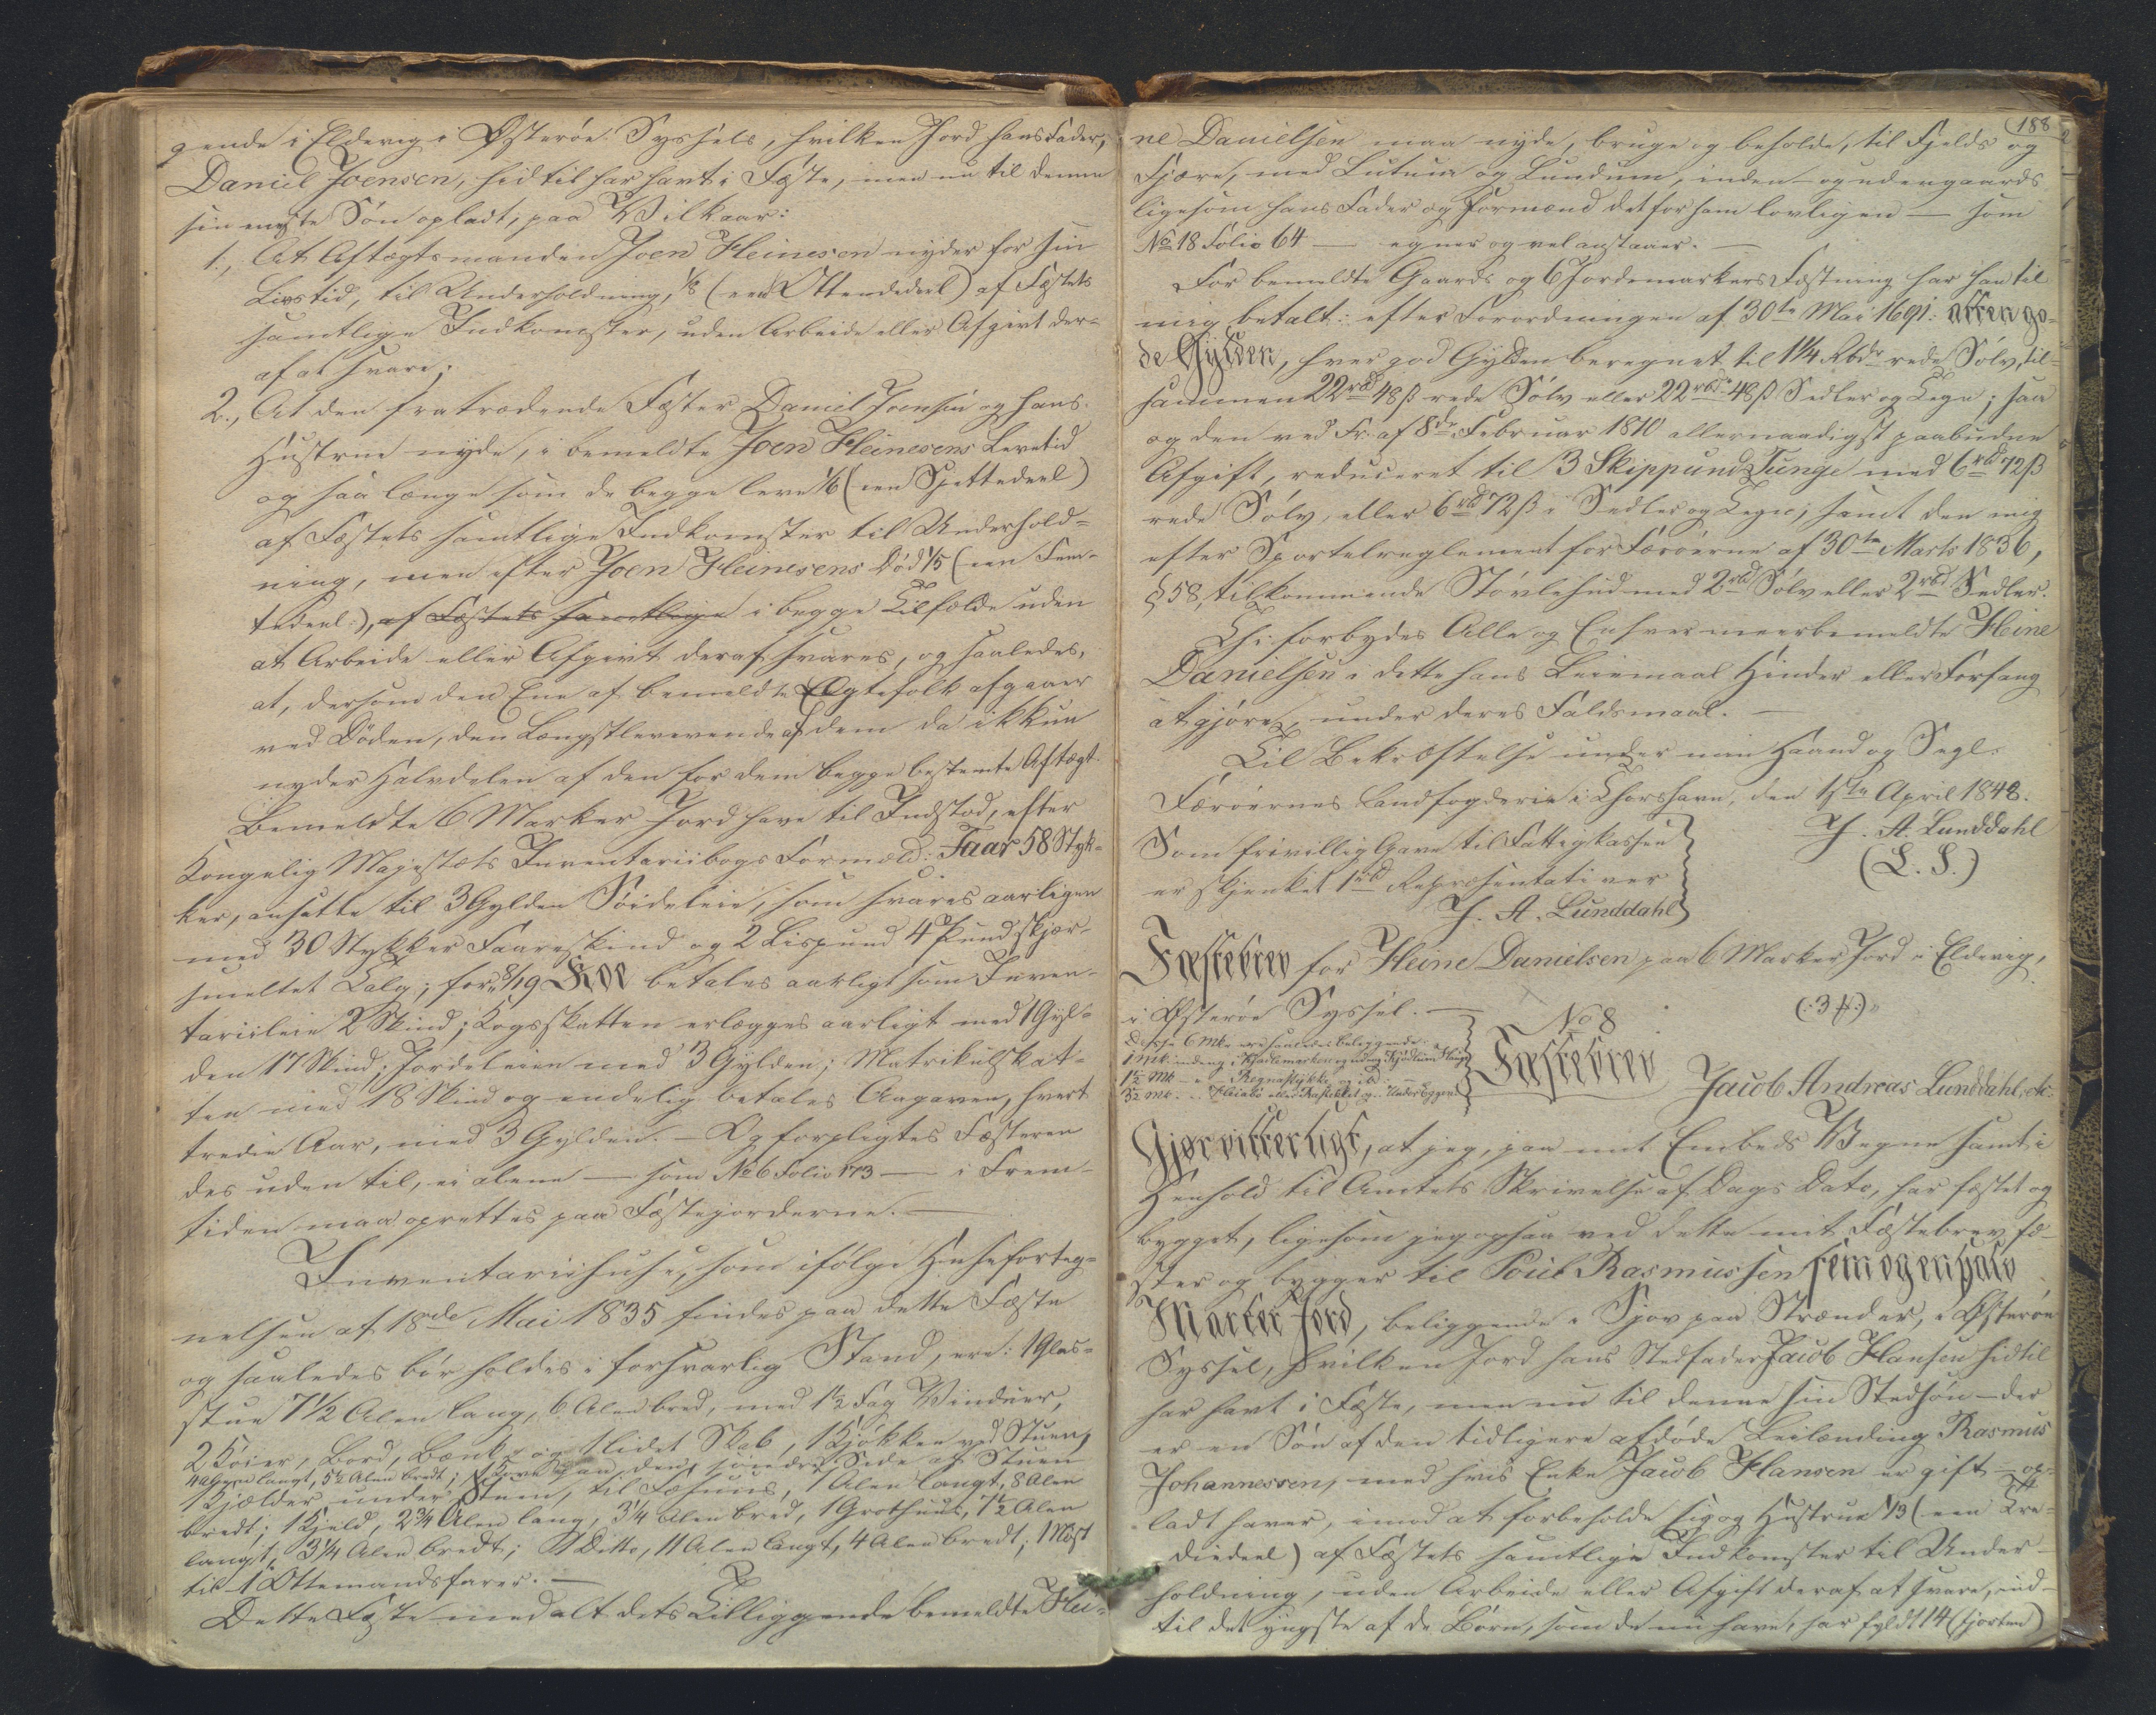 gende i Eldevig i Østerøe Syssels, hvilken Jord hans Fader,
Daniel Joensen, hidtil har havt i Fæste, men nu til denne
sin eneste Søn opladt, paa Vilkaar:
1., At Aftægtsmanden Joen Heinesen nyder for sin
Livstid, til Underholdning, 1/8 (een Ottendedeel) af Fæstets
samtlige Indkomster, uden Arbeide eller Afgivt der-
af at svare;
2., At den fratrædende Fæster Daniel Joensen og hans
Hustrue nyde, i bemeldte Joen Heinesens Levetid
og saa længe som de begge leve 1/6 (een Sjettedeel)
af Fæstets samtlige Indkomster til Underhold-
ning, men efter Joen Heinesens Død 1/5 (een Fem-
tedeel:), af Fæstets samtlige i begge Tilfælde uden
at Arbeide eller Afgivt deraf svares, og saaledes,
at, dersom den Ene af bemeldte Ægtefolk afgaaer
ved Døden, den Længstlevevende af dem da ikkun
nyder Halvdelen af den for dem begge bestemte Aftægt.
Bemeldte 6 Marker Jord have til Indstød, efter
Kongelig Majestæts Inventariibogs Formeld: Faar 58 Styk-
ker, ansatte til 3 Gylden Søideleie, som svares aarligen
med 30 Stykker Faareskind og 2 Lispund 4 Pund skjær-
smeltet Talg; for 8/19 Koe betales aarligt som Inven-
tariileie 2 Skind; Kogsskatten erlægges aarligt med 1 Gyl-
den 17 Skind; Jordeleien med 3 Gylden; Matrikulskat-
ten med 18 Skind og endelig betales Aagaven, hvert
tredie Aar, med 3 Gylden. – Og forpligtes Fæsteren
des uden til, ei alene — som No 6 Folio 173 — i Frem-
tiden maa oprettes paa Fæstejorderne. —
Inventariihuse, som ifølge Huseforteg-
nelsen af 18de Mai 1835 findes paa dette Fæste
og saaledes bør holdes i forsvarlig Stand, ere: 1 Glas-
stue 7 1/2 Alen lang, 6 Alen bred, med 1 1/2 Fag Vinduer,
2 Køier, Bord, Bænke og 1 lidet Skab, 1 Kjøkken ved Stuen,
4 Alen langt, 5 1/2 Alen bredt; paa den søndre Side af Stuen
1 Kjælder under Stuen, til Fæhuus, Alen langt, 8 Alen
bredt; 1 Hjeld, 2 3/4 Alen lang, 3 1/4 Alen bred, 1 Grothuus, 7 1/2 Alen
langt, 3 1/4 Alen bredt; 1 Ditto, 11 Alen langt, 4 Alen bredt; 1 Nøst
til 1 Ottemandsfarer. —
Dette Fæste med alt dets Tilliggende bemeldte Hei-
188
ne Danielsen maa nyde, bruge og beholde, til Fjelds og
Fjære, med Lutum og Lundum, inden- og udengaards
ligesom hans Fader og Formænd det for ham lovligen — som
No 18 Folio 64 — egner og vel anstaaer. —
For bemeldte Gaards og 6 Jordemarkers Fæstning har han til
mig betalt: efter Forordningen af 30te Mai 1691: atten go-
de Gylden, hver god Gylden beregnet til 1 1/4 Rbdr rede Sølv, til-
sammen 22 rbd 48 ß rede Sølv eller 22 rbdr 48 ß Sedler og Tegn; saa
og den ved Fr. af 8de Februar 1810 allernaadigst paabudne
Afgift, reduceret til 3 Skippund Tunge med 6 rbd 72 ß
rede Sølv, eller 6 rbd 72 ß i Sedler og Tegn; samt den mig
efter Sportelreglement for Færøerne af 30te Marts 1836,
§ 58, tilkommende Støvlehud med 2 rbd Sølv eller 2 rbd Sedler.
Thi forbydes Alle og Enhver meerbemeldte Heine
Danielsen i dette hans Leiemaal Hinder eller Forfang
at gjøre, under deres Faldsmaal. —
Til Bekræftelse under min Haand og Segl.
Færøernes Landfogderie i Thorshavn, den 1ste April 1848.
Som frivillig Gave til Fattigkassen
J. A. Lunddahl
er skjenket 1 rbd Repræsentativer
(L. S.)
J. A. Lunddahl
Fæstebrev for Heine Danielsen paa 6 Marker Jord i Eldevig,
i Østerøe Syssel. —
(: 3 ß :)
No 8
Disse 6 Mk ere saaledes beliggende:
1 Mk
1 1/2 Mk
3 1/2 Mk
Fæstebrev
Jacob Andreas Lunddahl, etc.
Gjør vitterligt, at jeg, paa mit Embeds Vegne samt i
Henhold til Amtets Skrivelse af Dags Dato, har fæstet og
bygget, ligesom jeg ogsaa ved dette mit Fæstebrev fæ-
ster og bygger til Poul Rasmussen fem og en halv
Marker Jord, beliggende i Sjov paa Strænder, i Østerøe
Syssel, hvilken Jord hans Stedfader Jacob Hansen hidtil
har havt i Fæste, men nu til denne sin Stedsøn – der
er en Søn af den tidligere afdøde Leilænding Rasmus
Johannessen, med hvis Enke Jacob Hansen er gift – op-
ladt haver, imod at forbeholde sig og Hustrue 1/3 (een Tre-
diedeel) af Fæstets samtlige Indkomster til Under-
holdning, uden Arbeide eller Afgift deraf at svare, ind-
til det yngste af de Børn, som de nu have, har fyldt 14 (fjorten)